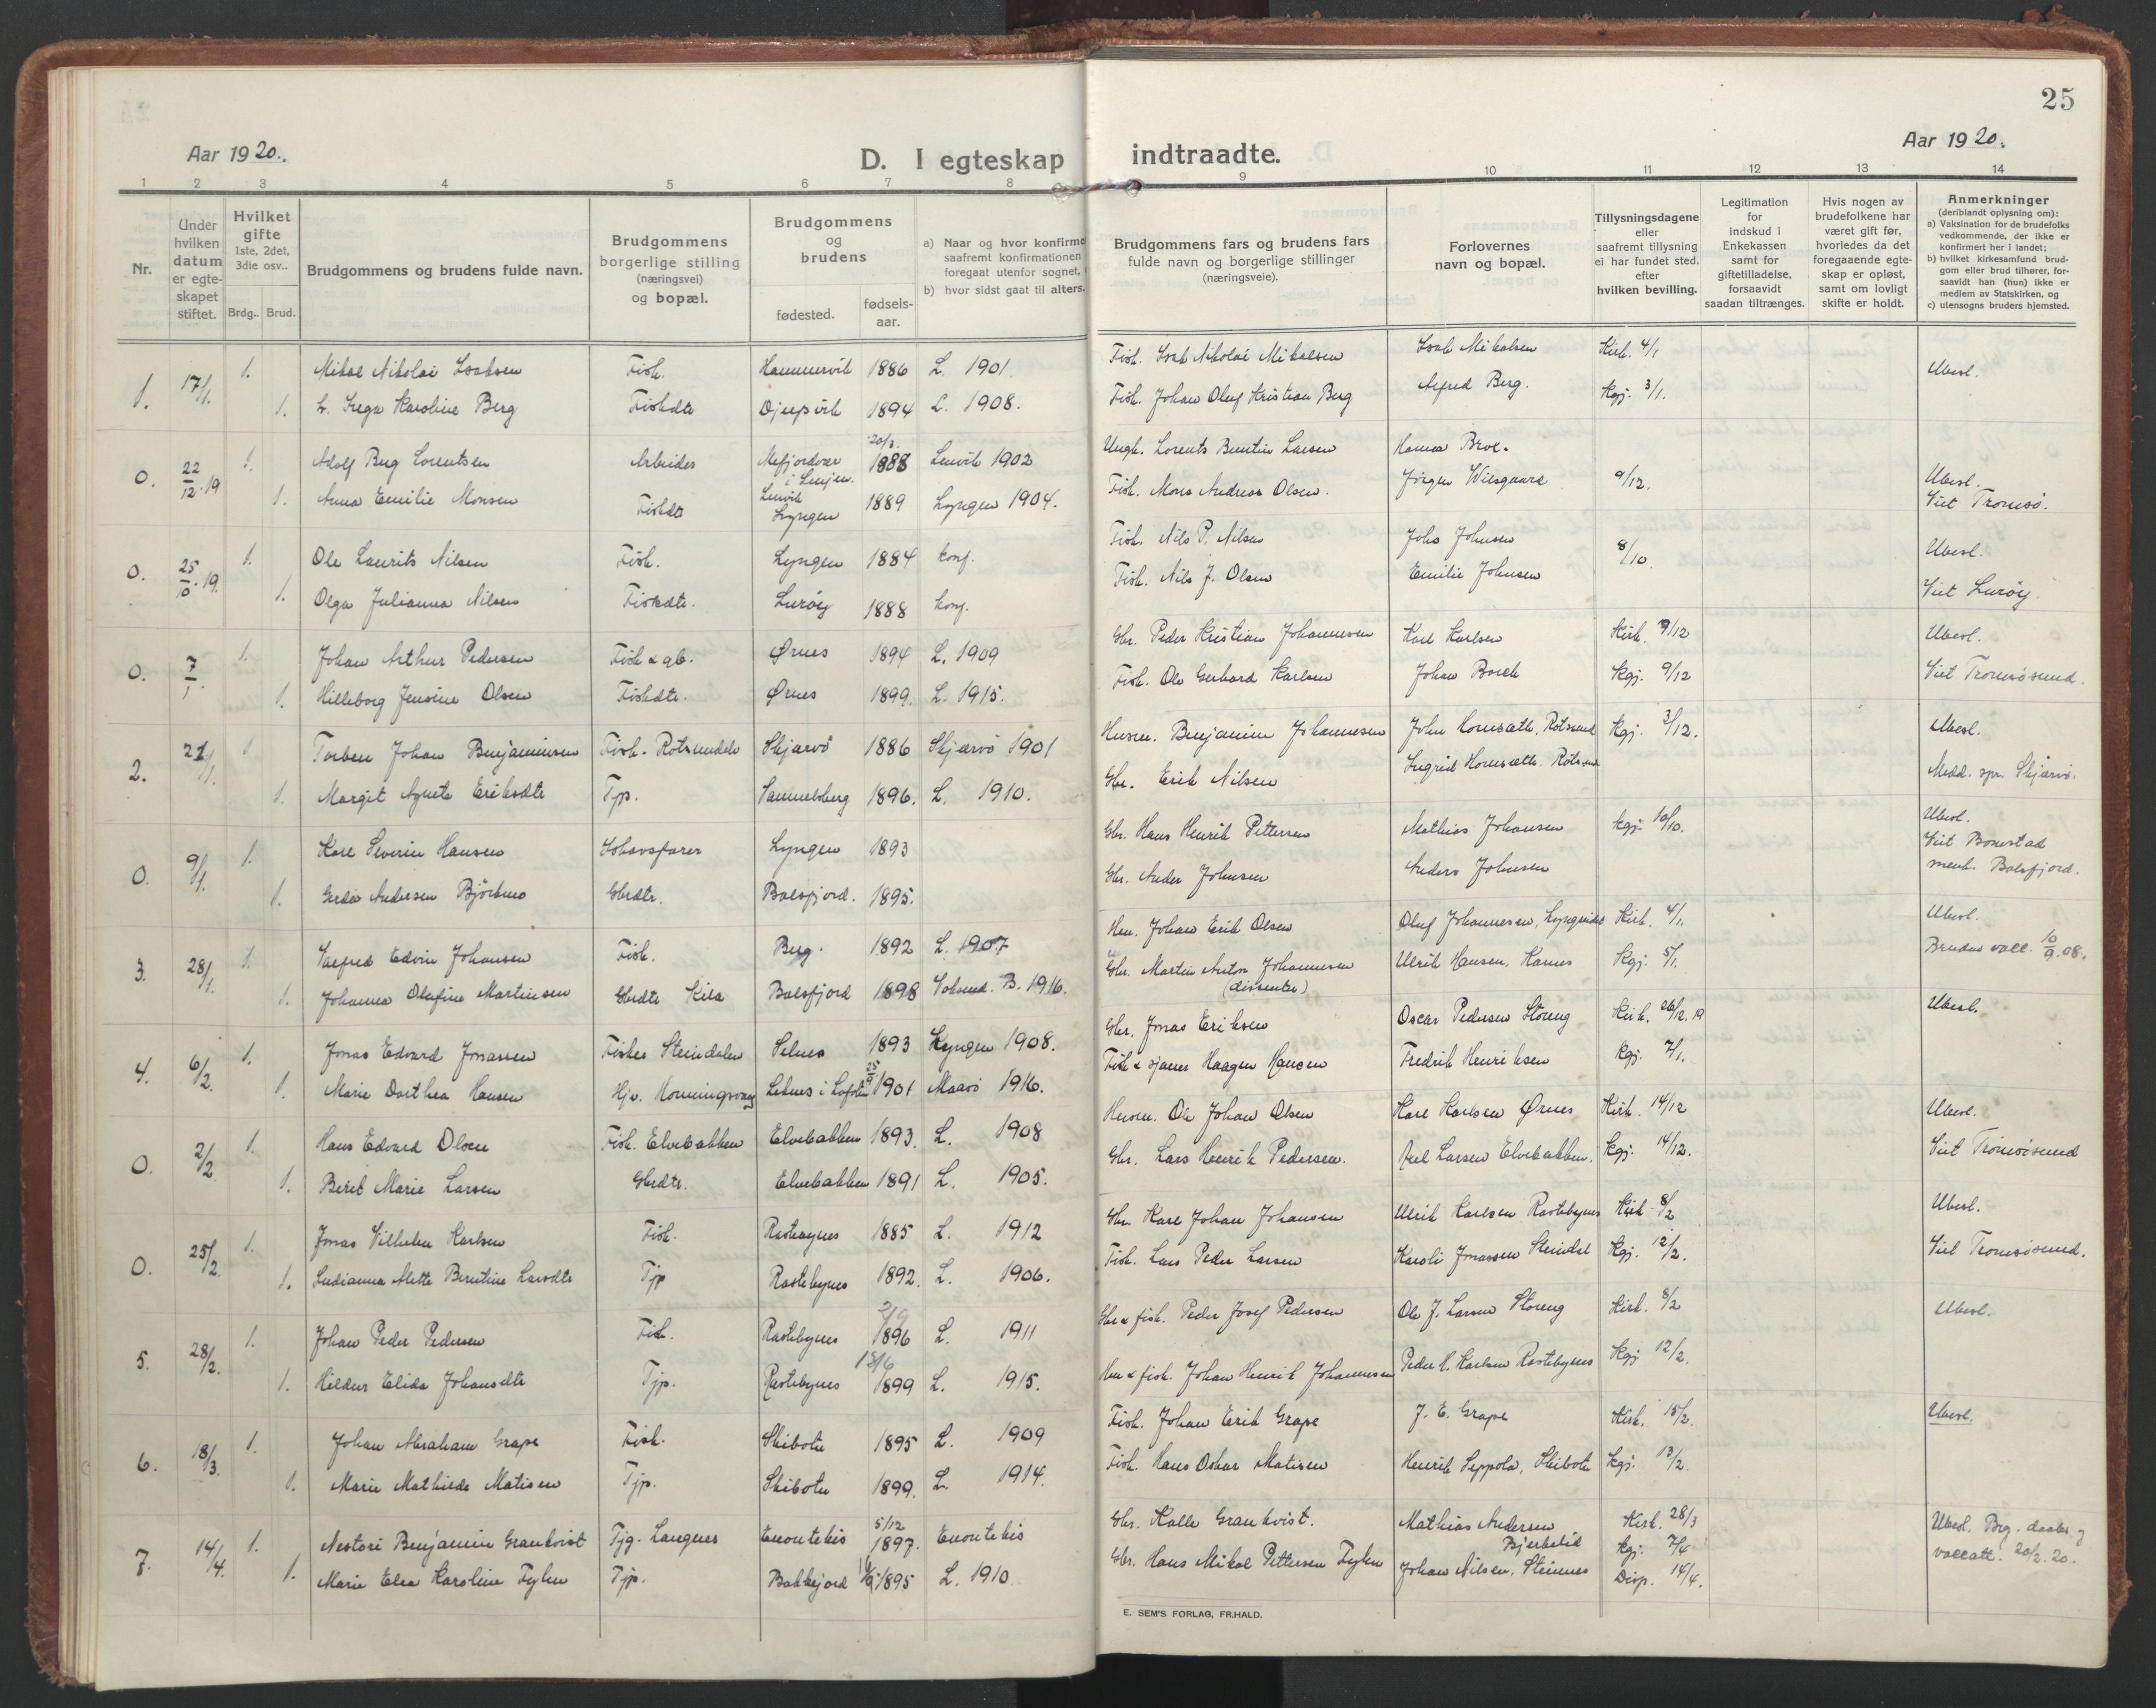 25
Aar 1920.
Aar 1920.
D. I egteskap indtraadte.
1 2 3 4 5 6 7 8 9 10 11 12 13 14
Nr.
Under hvilken datum er egteskapet stiftet.
Hvilket gifte 1ste, 2det, 3die osv..
Brdg.. Brud.
Brudgommens og brudens fulde navn.
Brudgommens borgerlige stilling (næringsvei) og bopæl.
Brudgommens og brudens
fødested.
fødsels-aar.
a) Naar og hvor konfirme
saafremt konfirmationen
foregaat utenfor sognet,
b) hvor sidst gaat til alters.
Brudgommens fars og brudens fars fulde navn og borgerlige stillinger (næringsveie).
Forlovernes navn og bopæl.
Tillysningsdagene eller saafremt tillysning ei har fundet sted, efter hvilken bevilling.
Legitimation for indskud i Enkekassen samt for giftetilladelse, forsaavidt saadan tiltrænges.
Hvis nogen av brudefolkene har været gift før, hvorledes da det foregaaende egteskap er opløst, samt om lovligt skifte er holdt.
Anmerkninger (deriblandt oplysning om):
a) Vaksination for de brudefolks vedkommende, der ikke er konfirmert her i landet;
b) hvilket kirkesamfund brudgom eller brud tilhører, forsaavidt han (hun) ikke er medlem av Statskirken, og
c) utensogns bruders hjemsted.
1. 17/1. 1. Mikal Nikolai Isaksen Fisk. Hammervik 1886 L. 1901 Fisk. Isak Nikolai Mikalsen Isak Mikalsen Kirk. 4/1 Ubesl.
1. Inga Karoline Berg Fiskdtr Djupvik 1894 L. 1908. Fisk. Johan Oluf Kristian Berg Alfred Berg. Kgj. 3/1.
0. 22/12.19 1. Adolf Berg Lorentsen Arbeider Mefjordvær i Senjen. 20/3. 1888 Lenvik 1902 Ungk. Lorents Berntin Larsen Hanna Broe. 9/12. Ubesl.
1. Anna Emilie Monsen Fiskdtr Lenvik Lyngen 1889 Lyngen 1904. Fisk. Mons Andreas Olsen. Jørgen Wilsgaard Viet Tromsö.
0. 25/10.19. 1. Ole Laurits Nilsen Fisk. Lyngen 1884 konf. Fisk. Nils P. Nilsen Johs Johnsen 8/10 Ubesl.
1. Olga Julianna Nilsen Fiskdtr. Luröy 1888 konf. Fisk. Nils J. Olsen Emilie Johnsen Viet Luröy
0. 7/1. 1. Johan Arthur Pedersen Fisk & gb. Ørnes 1894 L. 1909 Gbr. Peder Kristian Johannesen Karl Karlsen Kirk. 9/12 Ubesl.
1. Hilleborg Jensine Olsen Fiskdtr. Ørnes 1899. L. 1915. Fisk. Ole Gerhard Karlsen Johan Bosch Kgj. 9/12 Viet Tromsösund.
2. 21/1. 1 Torben Johan Benjaminsen Fisk. Rotsundelv Skjærvö 1886 Skjærvö 1901 Husm. Benjamin Johannesen John Hornsæth, Rotsund Kgj. 3/12. Ubesl.
1. Margit Agnete Eriksdtr Tjp. Samuelsberg 1896. L. 1910. Gbr. Erik Nilsen Ingrid Hornsæth. Rotsund Medd. spr. Skjærvö.
0. 9/1. 1. Karl Severin Hansen Ishavsfarer Lyngen 1893 Gbr. Hans Henrik Pettersen Mathias Johansen Kgj. 10/10. Ubesl.
1. Gerda Andersen Björkmo Gbrdtr. Balsfjord. 1895. Gbr. Ander Johnsen Anders Johnsen Viet Bonestad menh. Balsfjord.
3. 28/1. 1. Valfred Edvin Johansen Fisk. Berg. 1892 L. 1907 Hm. Johan Erik Olsen Oluf Johannesen, Lyngseidet Kirk. 4/1. Ubesl.
1. Johanna Olufine Martinsen Gbrdtr Kila Balsfjord 1898 B. 1916. Gbr. Martin Anton Johannesen (dissenter) Ulrik Hansen, Karnes Kgj. 5/1. Bruden vacc. 10/9.08.
4. 6/2. 1. Jonas Edvard Jonassen Fisker Steindalen Selnes 1893 Lyngen 1908. Gbr. Jonas Eriksen Oscar Pedersen Storeng Kirk. 26/12.19 Ubesl.
1. Marie Dorthea Hansen Hjv. Honningsvaag Leknes i Lofoten 25/9 1901 Maasö 1916. Fisk & sjaner Haagen Hansen Fredrik Henriksen Kgj. 7/1.
0. 2/2. 1. Hans Edvard Olsen Fisk. Elvebakken Elvebakken 1893. L. 1908 Husm. Ole Johan Olsen Karl Karlsen Ørnes Kirk. 14/12 Ubesl.
1. Berit Marie Larsen Gbrdtr. Elvebakken 1891 L. 1905. Gbr. Lars Henrik Pedersen. Larsen Elvebakken. Kgj. 14/12. Viet Tromsösund
0. 25/2. 1. Jonas Vilhelm Karlsen Fisk. Rastebynes 1885 L. 1912 Gbr. Karl Johan Johansen Ulrik Karlsen Rastebynes Kirk 8/2 Ubesl.
1. Ludianna Mette Berntine Larsdtr Tjp Rastebynes 1892. L. 1906. Fisk. Lars Peder Larsen Karoli Jonassen Steindal Kgj. 12/2. Viet Tromsösund.
5. 28/2. 1. Johan Peder Pedersen Fisk. Rastebynes 2/9 1896 L. 1911 Gbr & fisk. Peder Josef Pedersen Ole J. Larsen Storeng Kirk. 8/2 Ubesl.
1. Hildur Elida Johansdtr Tjp. Rastebynes 13/6 1899 L. 1915. Hm & fisk. Johan Henrik Johannesen Peder H. Karlsen Rastebynes Kgj 12/2.
6. 18/3. 1. Johan Abraham Grape Fisk. Skibotn 1895 L. 1909 Fisk. Johan Erik Grape J. E. Grape Kirk. 15/2. Ubesl.
1. Marie Mathilde Matisen Tjp. Skibotn 1899. L. 1914. Fisk. Hans Oskar Matisen Henrik Seppola, Skibotn Kgj. 13/2.
7. 14/4. 1. Nestori Benjamin Grankvist Tjg. Langnes Enontekis 5/12 1897. Enontekis Gbr. Kalle Grankvist. Mathias Andersen Bjerkelid Kirk. 28/3 Ubesl. Brg. daabs og
1. Marie Elea Karoline Fylin Tjp. Bakkejord 1895 L. 1910 Gbr. Hans Mikal Pettersen Fylin Johan Nilsen, Steinnes Kgj. 7/4 Disp. 14/4. vaccatt. 20/2.20.
E. SEM'S FORLAG, FR.HALD.